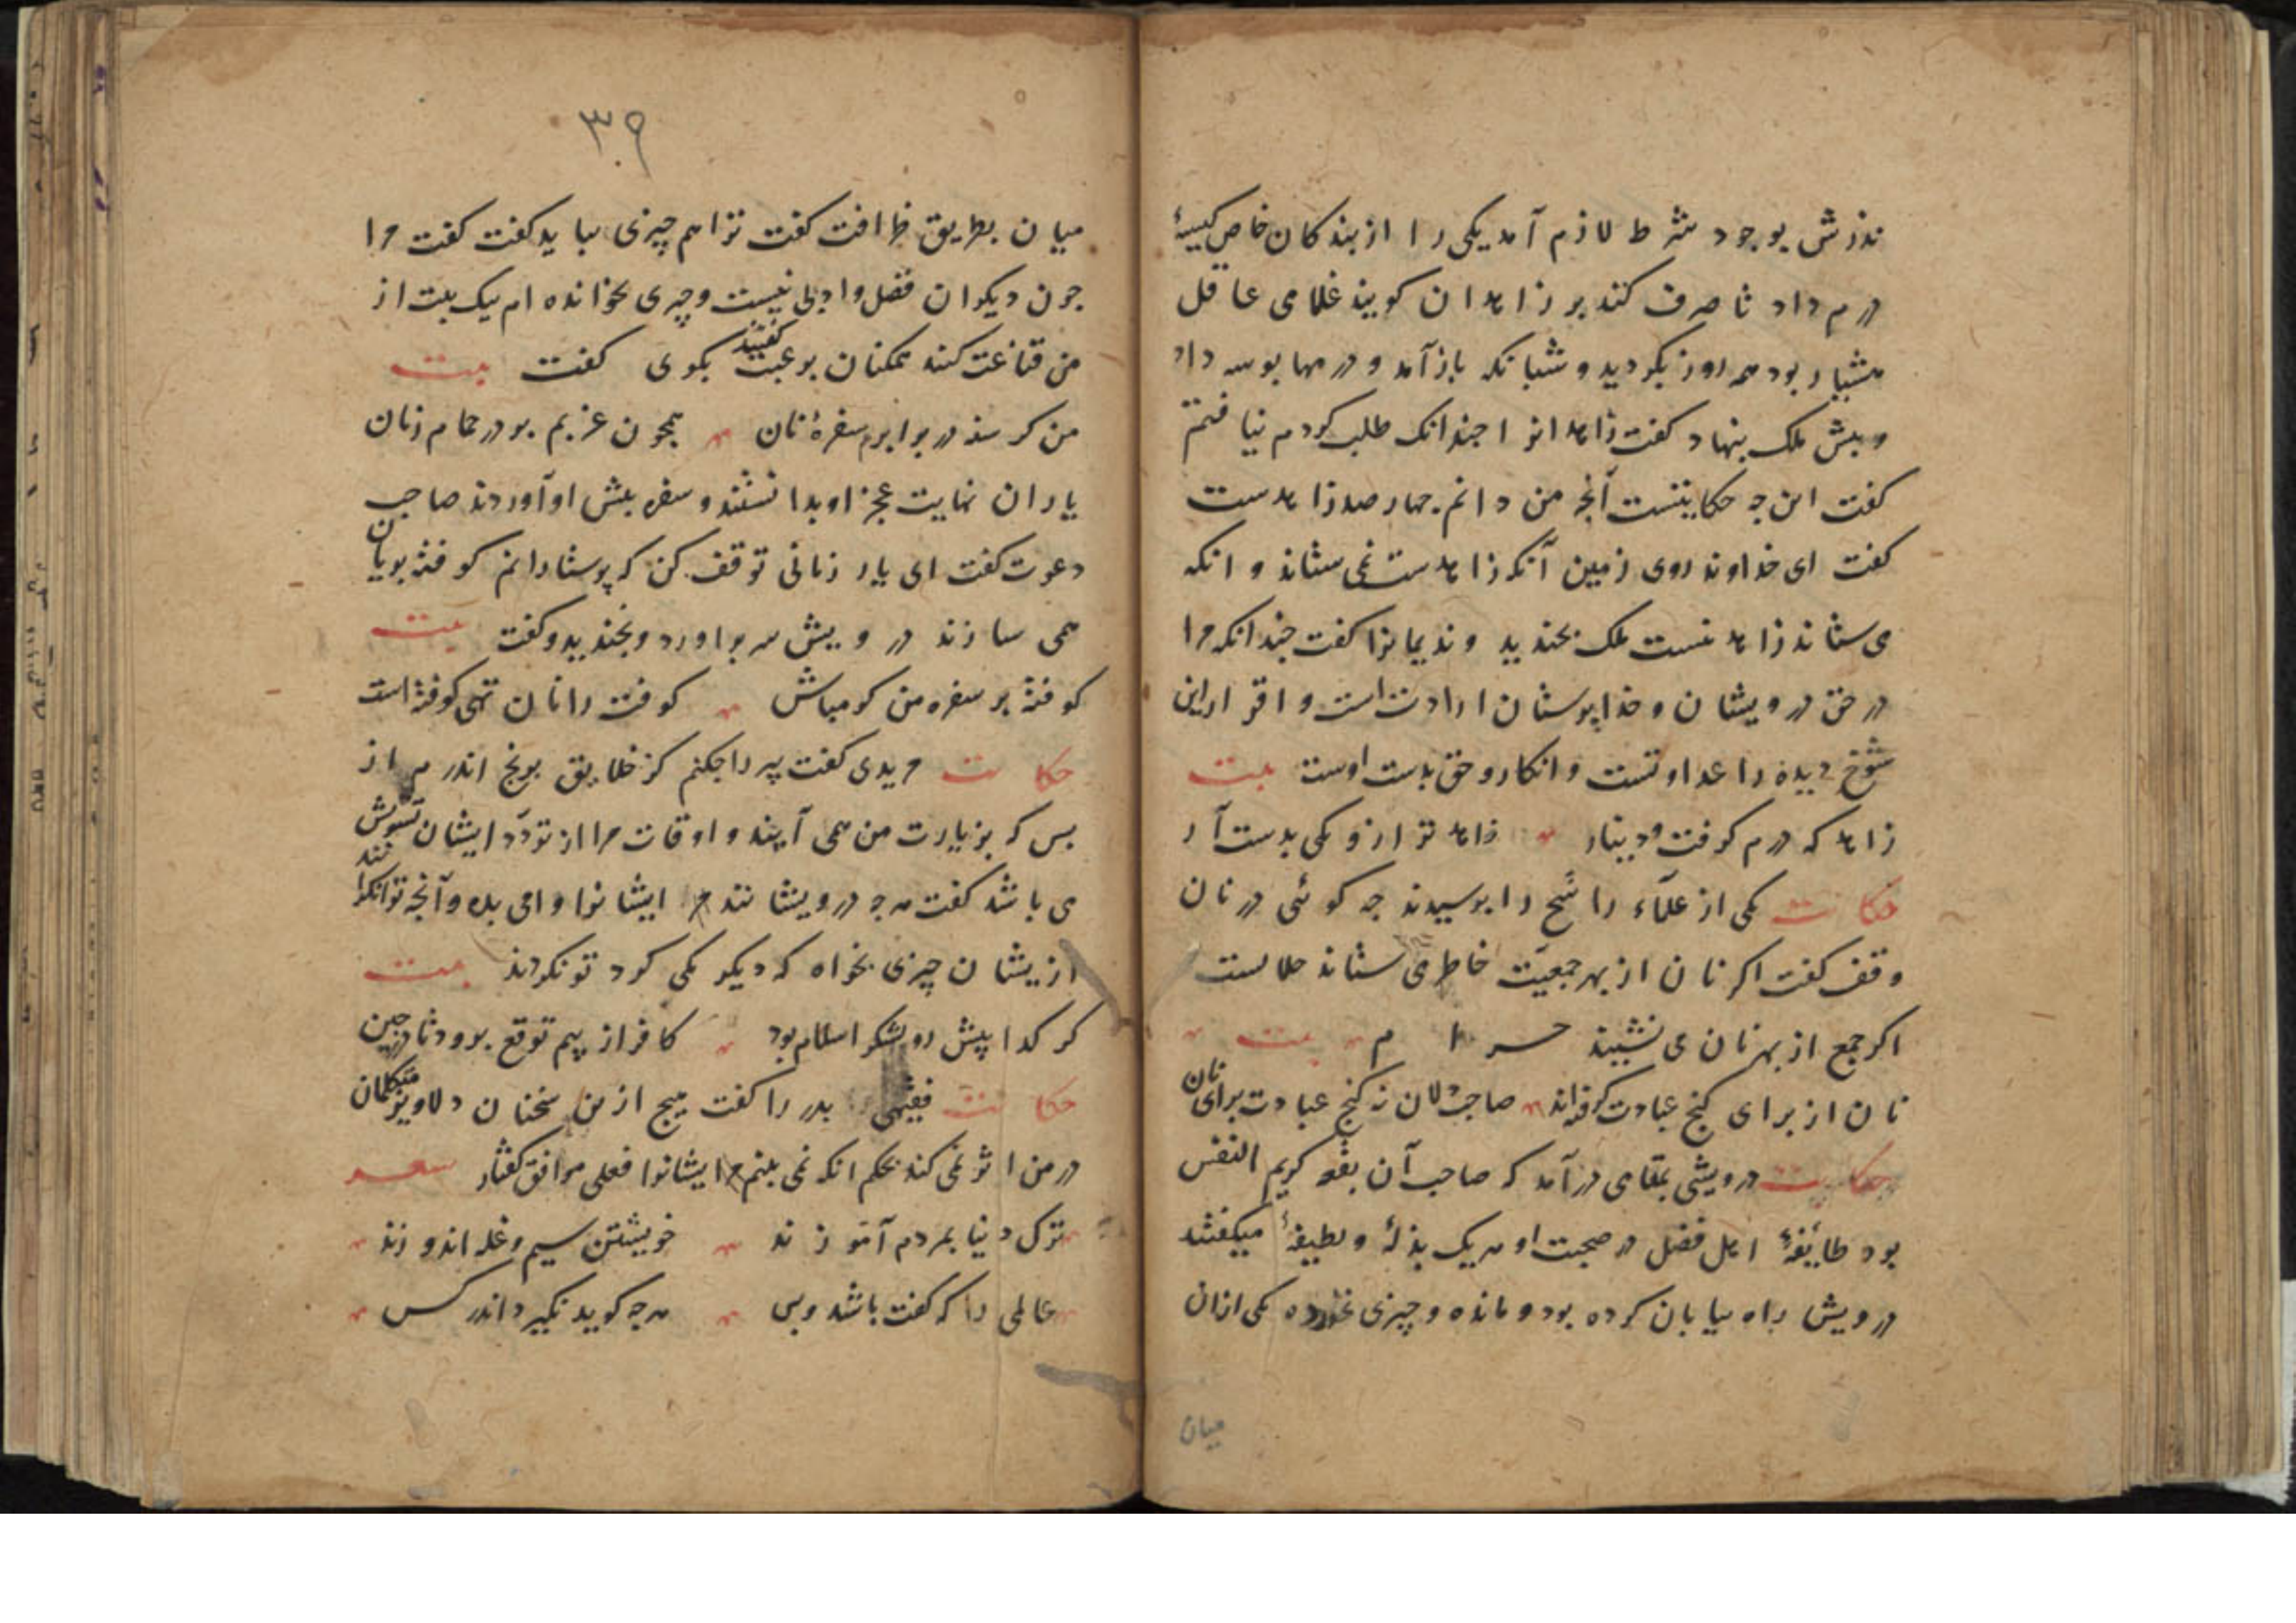 نذرش بوجود شرط لازم آمد یکی را از بندکان خاص کیسهٔ
درم داد تا صرف کند بر زاهدان کویند غلامی عاقل
هشیار بود همه روز بکردید و شبانکه باز آمد و درمها بوسه داد
و پیش ملک بنهاد کفت زاهدانرا جندانک طلب کردم نیافتم
کفت این جه حکایتست آنجه من دانم جهار صد زاهدست
کفت ای خداوند روی زمین آنکه زاهدست نمی ستاند و انکه
می ستاند زاهد نیست ملک بخندید و ندیمانرا کفت جندانکه مرا
در حق درویشان و خداپرستان ارادت است و اقرار این
شوخ دیده را عداوتست و انکار و حق بدست اوست بیت
زاهد که درم کرفت و دینار زاهد تر ازو یکی بدست آر
حکایت یکی از علمآء راسخ را پرسیدند جه کوئی در نان
وقف کفت اکر نان از بهر جمعیّت خاطر می ستاند حلالست
اکر جمع از بهر نان می نشیند حرام بیت
نان از برای کنج عبادت کرفته‌اند صاحبدلان نه کنج عبادت برای نان
حکایت درویشی بمقامی درآمد که صاحب آن بقعه کریم النفس
بود طایفهٔ اهل فضل در صحبت او هریک بذلهٔ و لطیفهٔ میکفتند
درویش راه بیابان کرده بود و مانده و چیزی نخورده یکی ازان
میان
۳۹
میان بطریق ظرافت کفت ترا هم چیزی بباید کفت کفت مرا
جون دیکران فضل و ادبی نیست و چیزی نخوانده ام بیک بیت از
من قناعت کنند همکنان برغبت کفتند بکوی کفت بیت
من کرسنه در برابرم سفرهٔ نان همجون عزبم بر در حمام زنان
یاران نهایت عجز او بدانستند و سفره پیش او آوردند صاحب
دعوت کفت ای یار زمانی توقف کن که پرستارانم کوفته بریان
همی سازند درویش سر برآورد و بخندید و کفت بیت
کوفته بر سفره من کو مباش کوفته را نان تهی کوفته است
حکایت مریدی کفت پیر را جکنم کز خلایق برنج اندرم از
بس که بزیارت من همی آیند و اوقات مرا از تردّد ایشان تشویش
می باشد کفت هرجه درویشانند مر ایشانرا وامی بده و آنجه توانکرانند
ازیشان چیزی بخواه که دیکر یکی کرد تو نکردند بیت
کر کدا پیش رو لشکر اسلام بود کافر از بیم توقع برود تا در چین
حکایت فقیهی پدر را کفت هیج ازین سخنان دلاویز متکلمان
در من اثر نمی کند بحکم انکه نمی بینم مر ایشانرا فعلی موافق کفتار شعر
ترک دنیا بمردم آموزند خویشتن سیم و غله اندوزند
عالمی را که کفت باشد و بس هرجه کوید نکیرد اندر کس